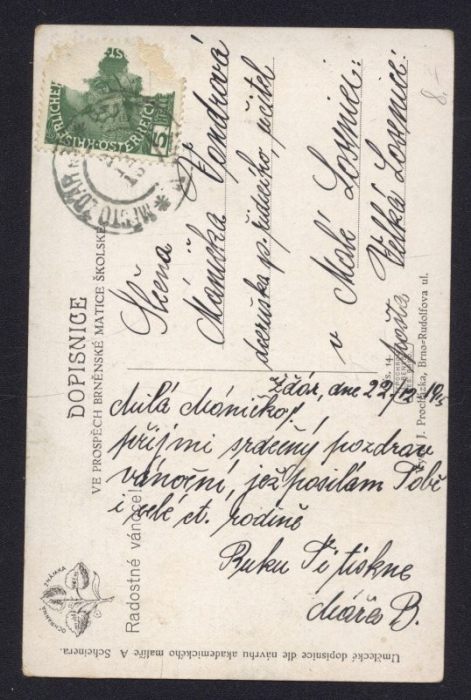 DOPISNICE
VE PROSPĚCH BRNĚNSKÉ MATICE ŠKOLSKÉ
Slečna
Mánička Vondrová
dceruška p. řídícího učitel
v Malé Losenici
Pošta Velká Losenice
MĚSTO ŽĎÁR
5
Žďár, dne 22/12
Milá Máničko!
přijmi srdečný pozdrav
vánoční, jež posílám Tobě
i celé ct. rodině
Ruku Ti tiskne
B.
Radostné vánoce!
OCHRANNÁ ZNÁMKA
J. Procházka, Brno-Rudolfova ul.
Umělecké dopisnice dle návrhu akademického malíře A Scheinera.
8,-